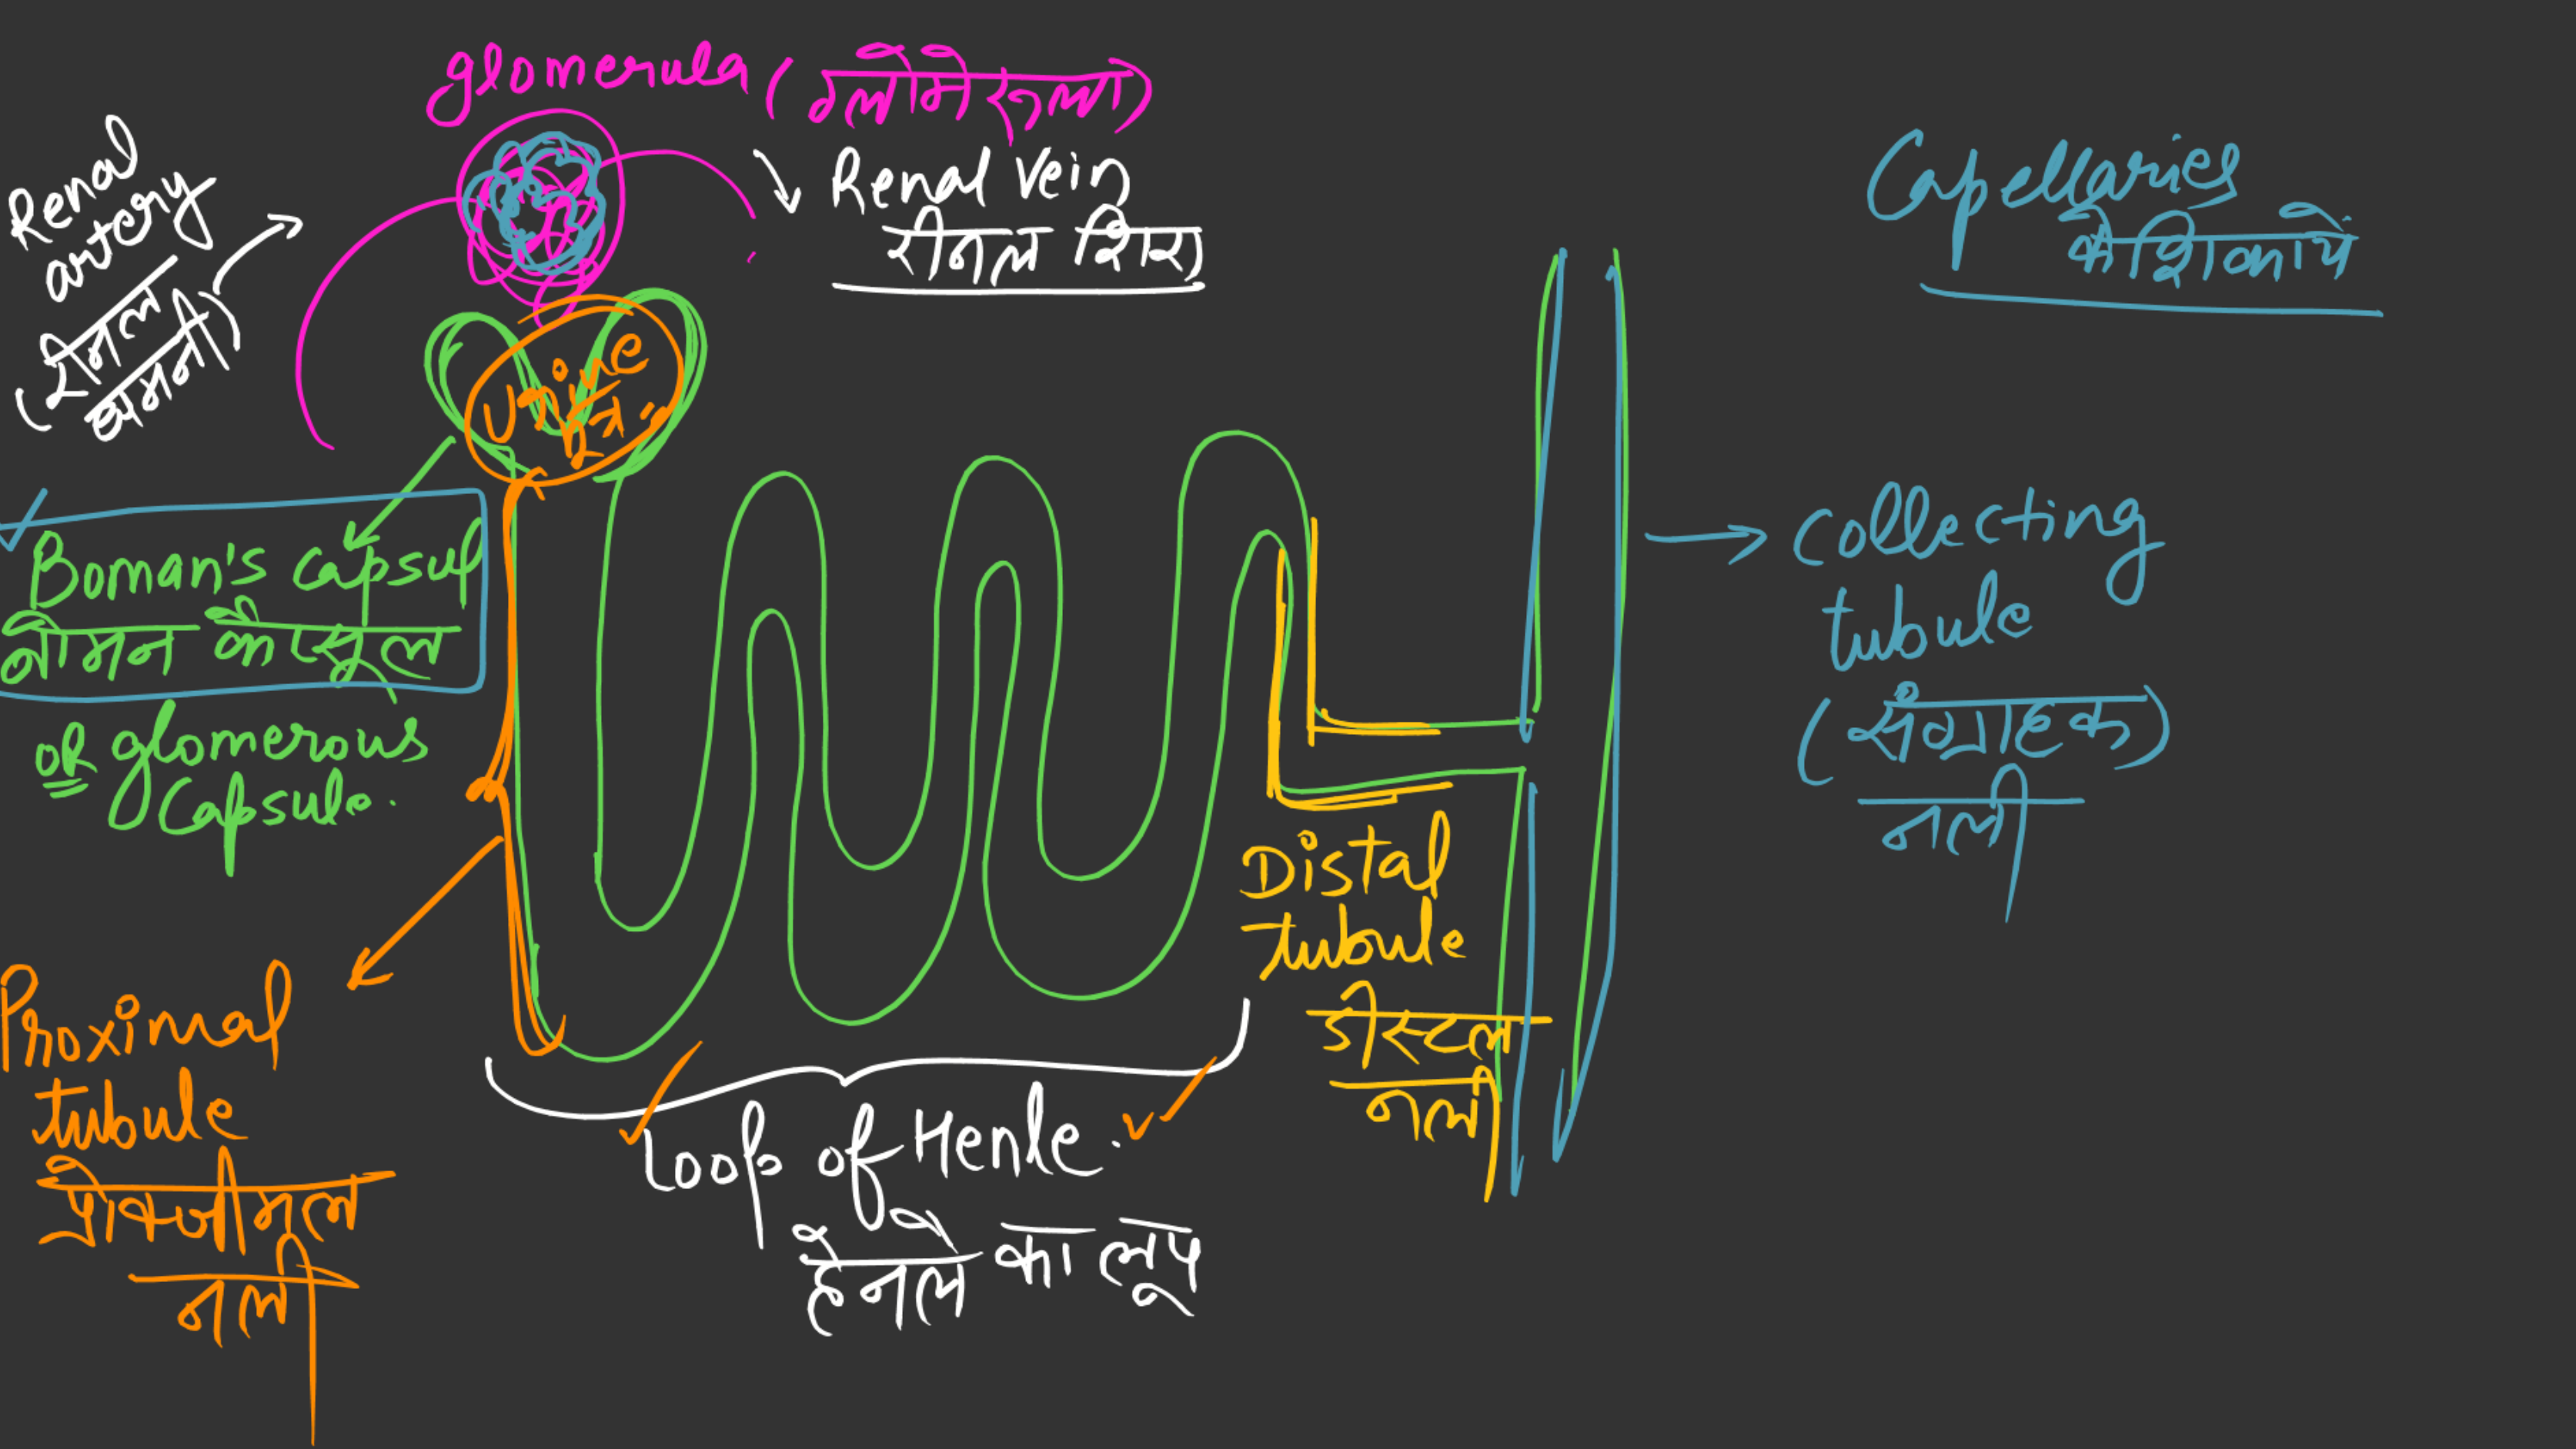 glomerula (ग्लोमेरुला)
Renal
artery
(रीनल
धमनी)
Renal Vein
रीनल शिरा
Capellaries
केशिकायें
Urine
मूत्र
Boman's capsul
बोमन कैप्सूल
OR glomerous
Capsule.
Collecting
tubule
(संग्राहक)
नली
Proximal
tubule
प्रोक्जीमल
नली
Distal
tubule
डीस्टल
नली
Loop of Henle.
हैनले का लूप